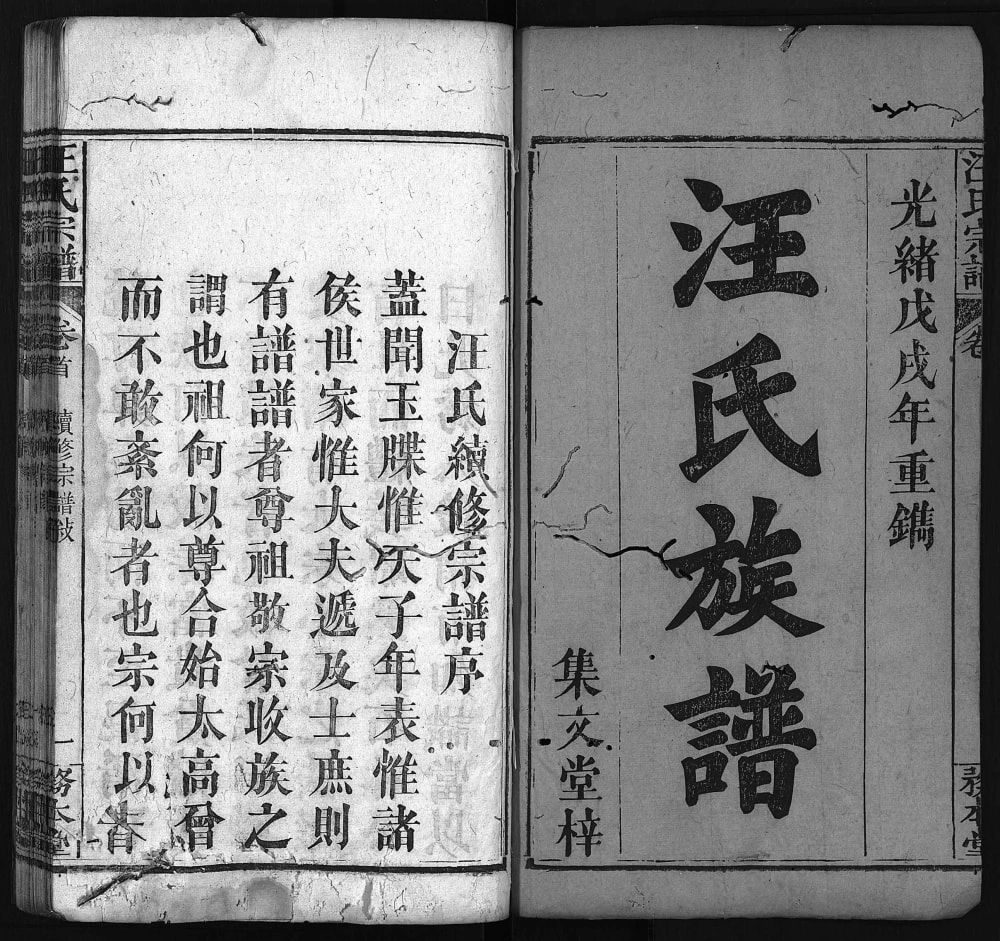 汪氏宗譜
卷
務本堂
光緒戊戌年重鐫
汪氏族譜
集文堂梓
汪氏續修宗譜序
蓋聞玉牒惟天子年表惟諸
侯世家惟大夫遞及士庶則
有譜譜者尊祖敬宗收族之
謂也祖何以尊合始太高曾
而不敢紊亂者也宗何以
汪氏宗譜
卷首
續修宗譜敍
一
務本堂